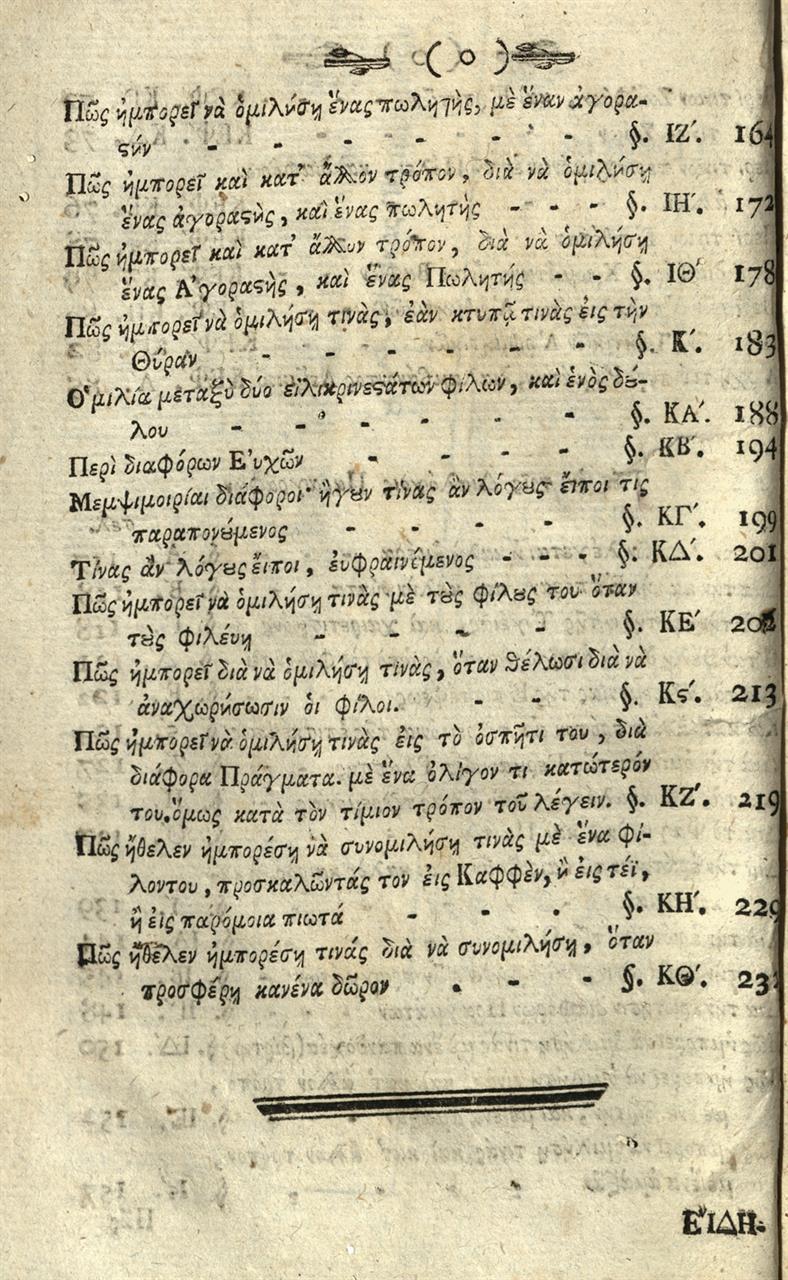 ( ο )
Πῶς ἠμπορεῖ νὰ ὁμιλήσῃ ἕνας πωλητὴς, μὲ ἕναν ἀγορα-
ϛήν - - - - - - §. ΙΖ΄. 164
Πῶς ἠμπορεῖ καὶ κατ' ἄλλον τρόπον, διὰ νὰ ὁμιλήσῃ
ἕνας ἀγοραϛὴς, καὶ ἕνας πωλητὴς - - - §. ΙΗ΄. 172
Πῶς ἠμπορεῖ καὶ κατ' ἄλλον τρόπον, διὰ νὰ ὁμιλήσῃ
ἕνας Ἀγοραϛὴς, καὶ ἕνας Πωλητής - - §. ΙΘ΄ 178
Πῶς ἠμπορεῖ νὰ ὁμιλήσῃ τινὰς, ἐὰν κτυπᾷ τινὰς εἰς τὴν
Θύραν - - - - - - §. Κ΄. 183
Ὁμιλία μεταξὺ δύο εἰλικρινεϛάτων φίλων, καὶ ἑνὸς δȣ́-
λου - - - - - - §. ΚΑ΄. 188
Περὶ διαφόρων Εὐχῶν - - - §. ΚΒ΄. 194
Μεμψιμοιρίαι διάφοροι· ἤγȣν τίνας ἂν λόγȣς εἴποι τις
παραπονȣ́μενος - - - - §. ΚΓ΄. 199
Τίνας ἂν λόγȣς εἴποι, ἐυφραινόμενος - - - §. ΚΔ΄. 201
Πῶς ἠμπορεῖ νὰ ὁμιλήσῃ τινὰς μὲ τȣ̀ς φίλȣς του ὅταν
τȣ̀ς φιλέυῃ - - - - §. ΚΕ΄
Πῶς ἠμπορεῖ διὰ νὰ ὁμιλήσῃ τινὰς, ὅταν θέλωσι διὰ νὰ
ἀναχωρήσωσιν ὁι φίλοι. - - §. Κϛ΄. 213
Πῶς ἠμπορεῖ νὰ ὁμιλήσῃ τινὰς εἰς τὸ ὀσπῆτι του, διὰ
διάφορα Πράγματα. μὲ ἕνα ὀλίγον τι κατώτερόν
του. ὅμως κατὰ τὸν τίμιον τρόπον τοῦ λέγειν. §. ΚΖ΄. 219
Πῶς ἤθελεν ἠμπορέσῃ νὰ συνομιλήσῃ τινὰς μὲ ἕνα φί-
λοντου, προσκαλῶντάς τον ἐις Καφφὲν, ἢ ἐις τέϊ,
ἢ ἐις παρόμοια πιωτά - - - §. ΚΗ΄. 229
Πῶς ἤθελεν ἠμπορέσῃ τινάς διὰ νὰ συνομιλήσῃ, ὅταν
προσφέρῃ κανένα δῶρον - - - §. ΚΘ΄.
ΕἸΔΗ-